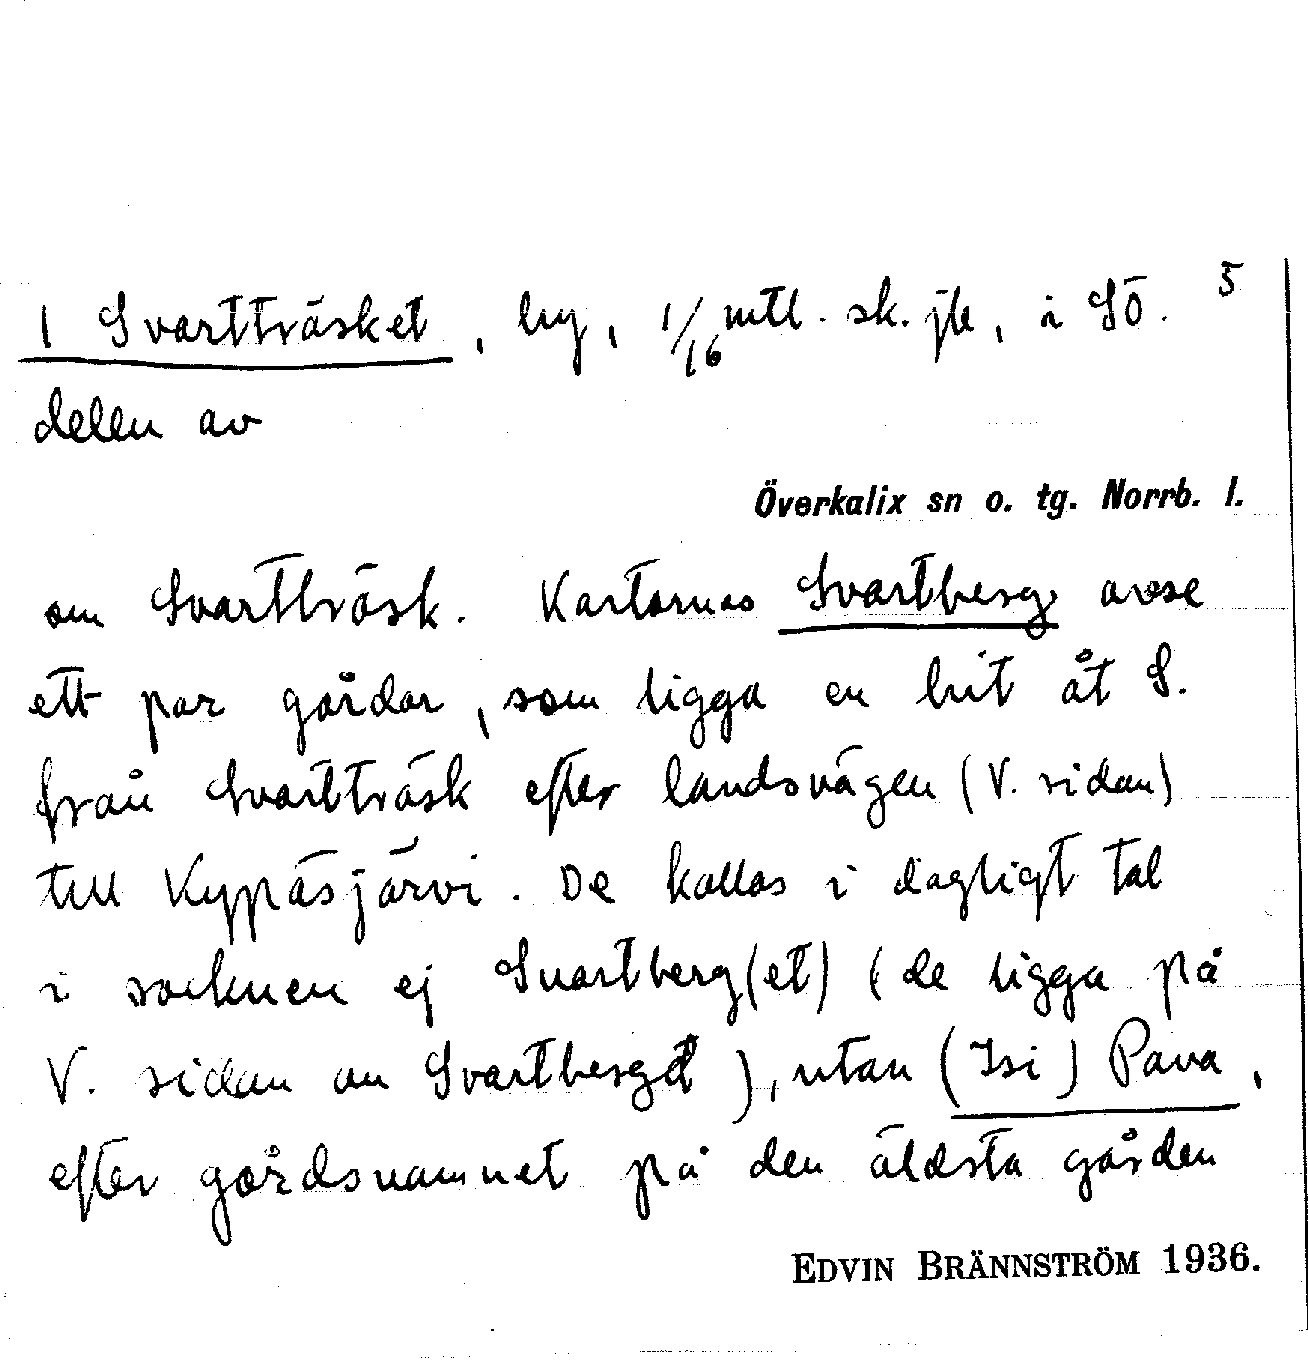 5
1 Svartträsket, by, 1/16 mtl. sk. jb, i SÖ.
delen av
Överkalix sn o. tg. Norrb. l.
om Svartträsk. Kartornas Svartberg avse
ett par gårdar, som ligga en bit åt S.
från Svartträsk efter landsvägen (V. sidan)
till Kypäsjärvi. De kallas i dagligt tal
i socknen ej Svartberg(et) (de ligga på
V. sidan om Svartberget), utan (Isi) Pava,
efter gårdsnamnet på den äldsta gården
EDVIN BRÄNNSTRÖM 1936.